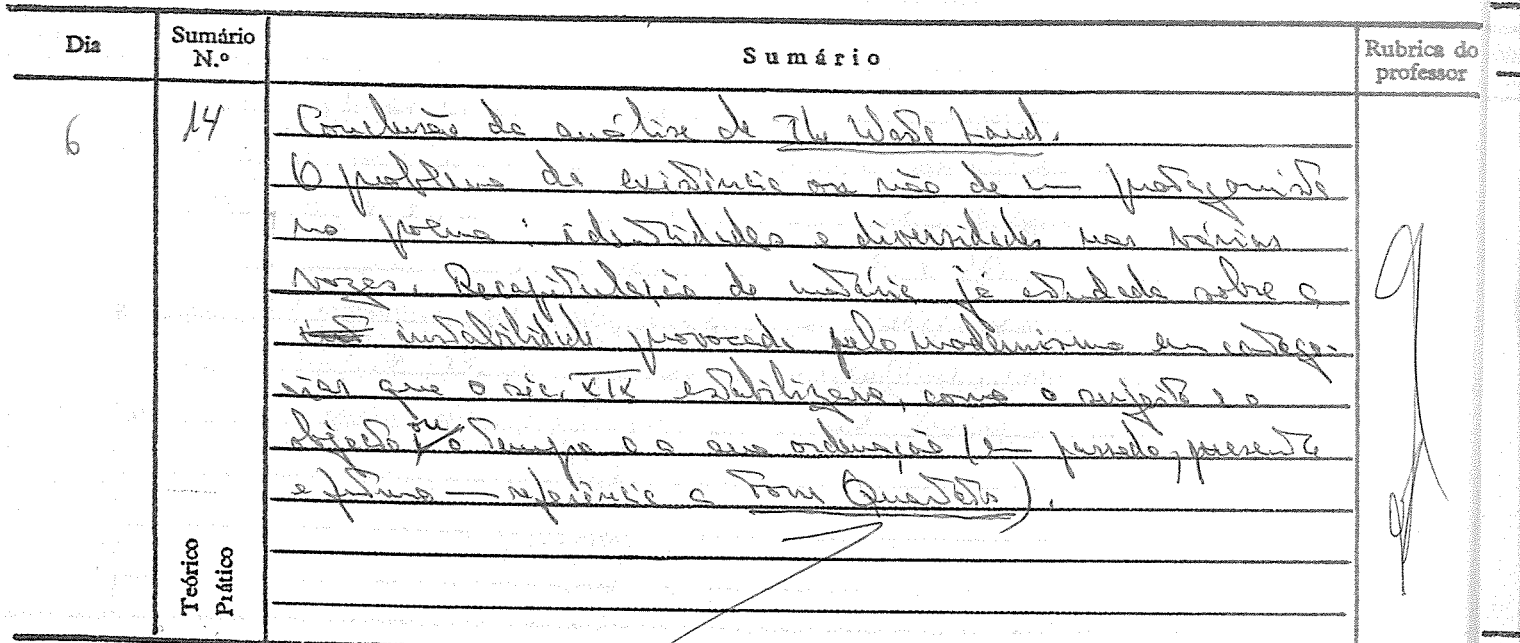 Dia
Sumário N.º
Sumário
Rubrica do professor
6
14
Conclusão da análise de The Waste Land.
O problema da existência ou não de um protagonista
no poema: identidades e diversidades nas várias
vozes. Recapitulação de matéria já estudada sobre a
instabilidade provocada pelo modernismo em catego-
rias que o séc. XIX estabilizara, como o sujeito e o
objecto ou o tempo e a sua ordenação (em passado, presente
e futuro — referência a Four Quartets).
Teórico
Prático